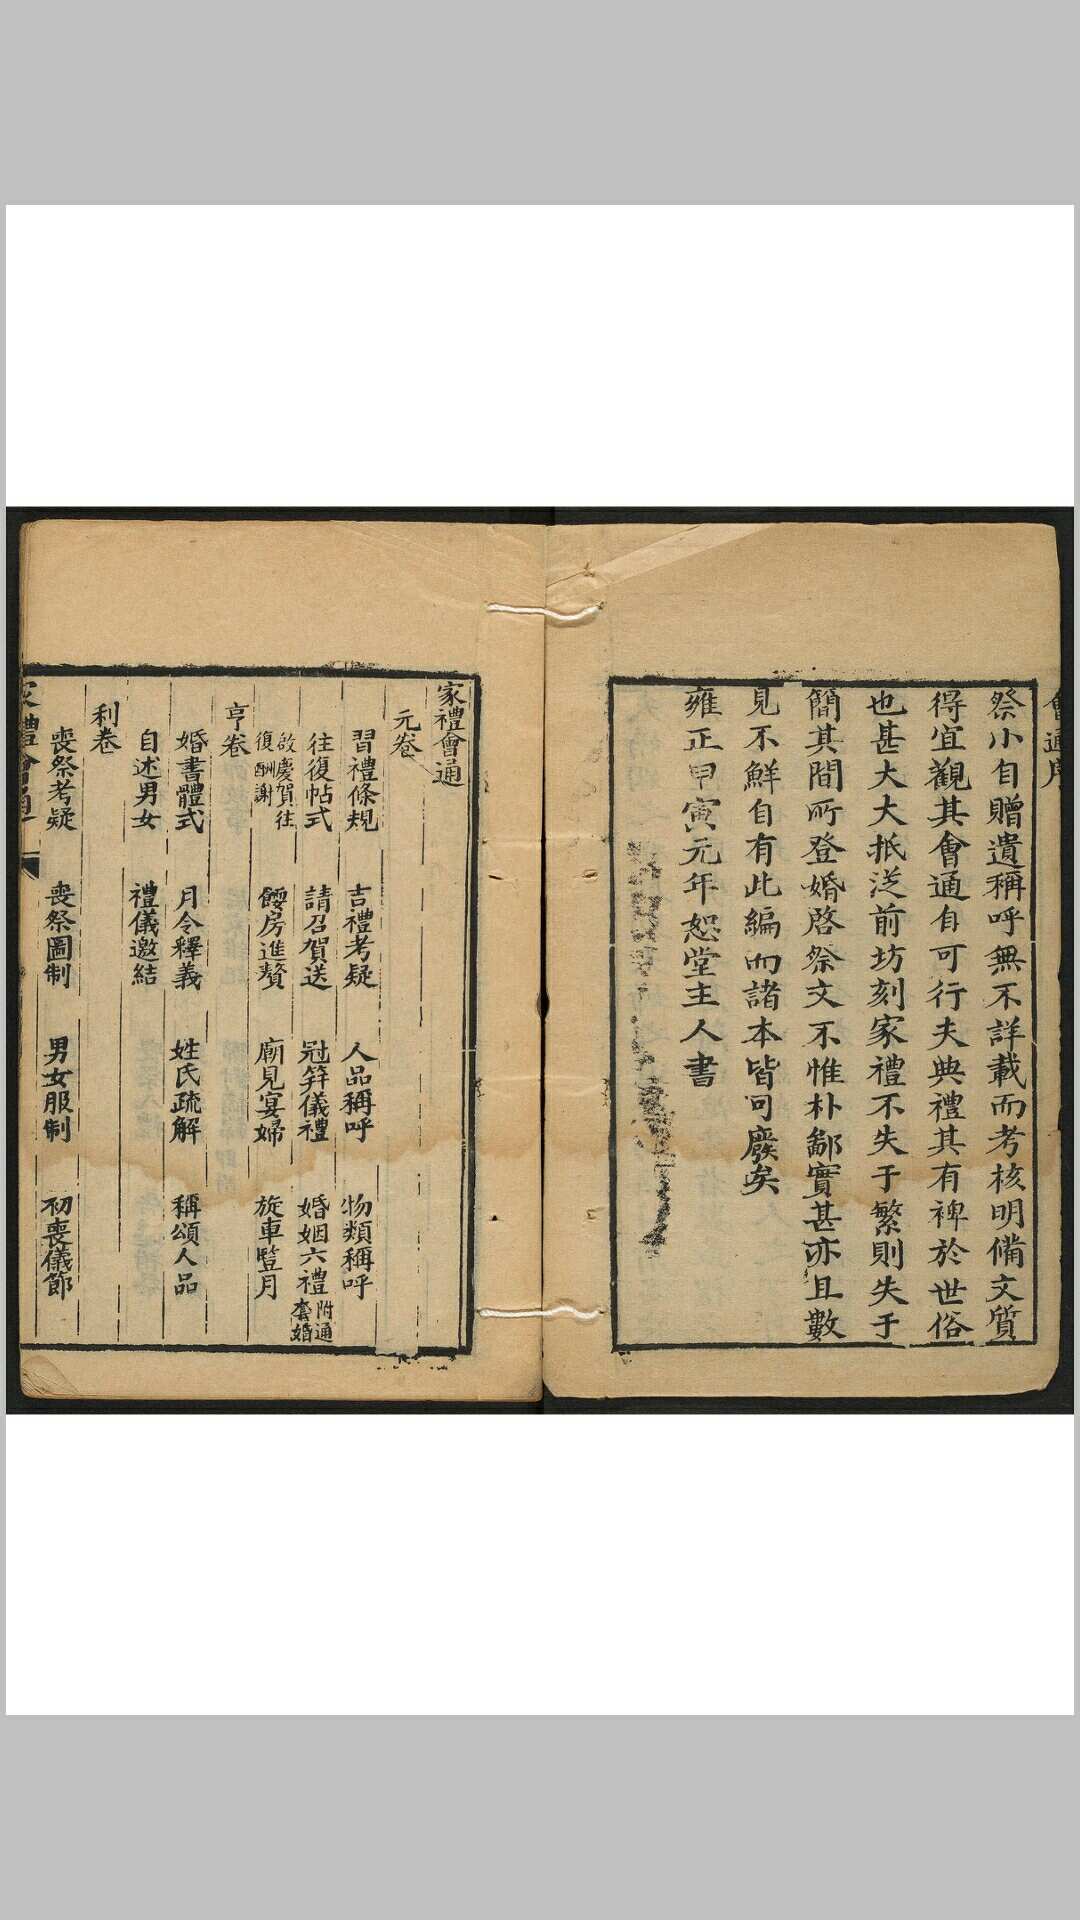 會通序
祭小自贈遺稱呼無不詳載而考核明備文質
得宜觀其會通自可行夫典禮其有裨於世俗
也甚大大抵從前坊刻家禮不失于繁則失于
簡其間所登婚啓祭文不惟朴鄙實甚亦且數
見不鮮自有此編而諸本皆可廢矣
雍正甲寅元年恕堂主人書
家禮會通
元卷
習禮條規 吉禮考疑 人品稱呼 物類稱呼
往復帖式 請召賀送 冠笄儀禮 婚姻六禮 附通套婚
啟慶賀往復酬謝 餪房進贅 廟見宴婦 旋車暨月
亨卷
婚書體式 月令釋義 姓氏疏解 稱頌人品
自述男女 禮儀邀結
利卷
喪祭考疑 喪祭圖制 男女服制 初喪儀節
家禮會通